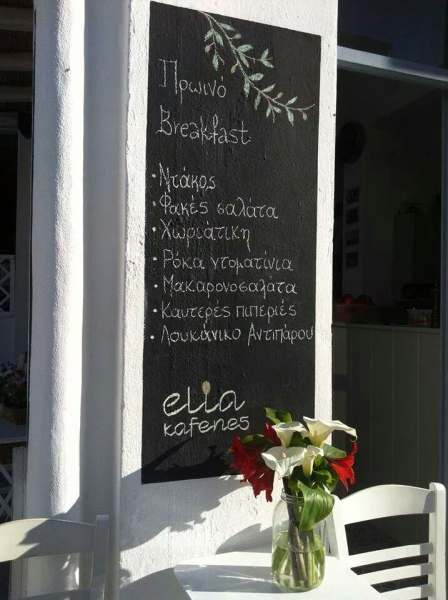 Πρωινό
Breakfast
• Ντάκος
• Φακές σαλάτα
• Χωριάτικη
• Ρόκα ντοματίνια
• Μακαρονοσαλάτα
• Καυτερές πιπεριές
• Λουκάνικο Αντιπάρου
elia
kafenes